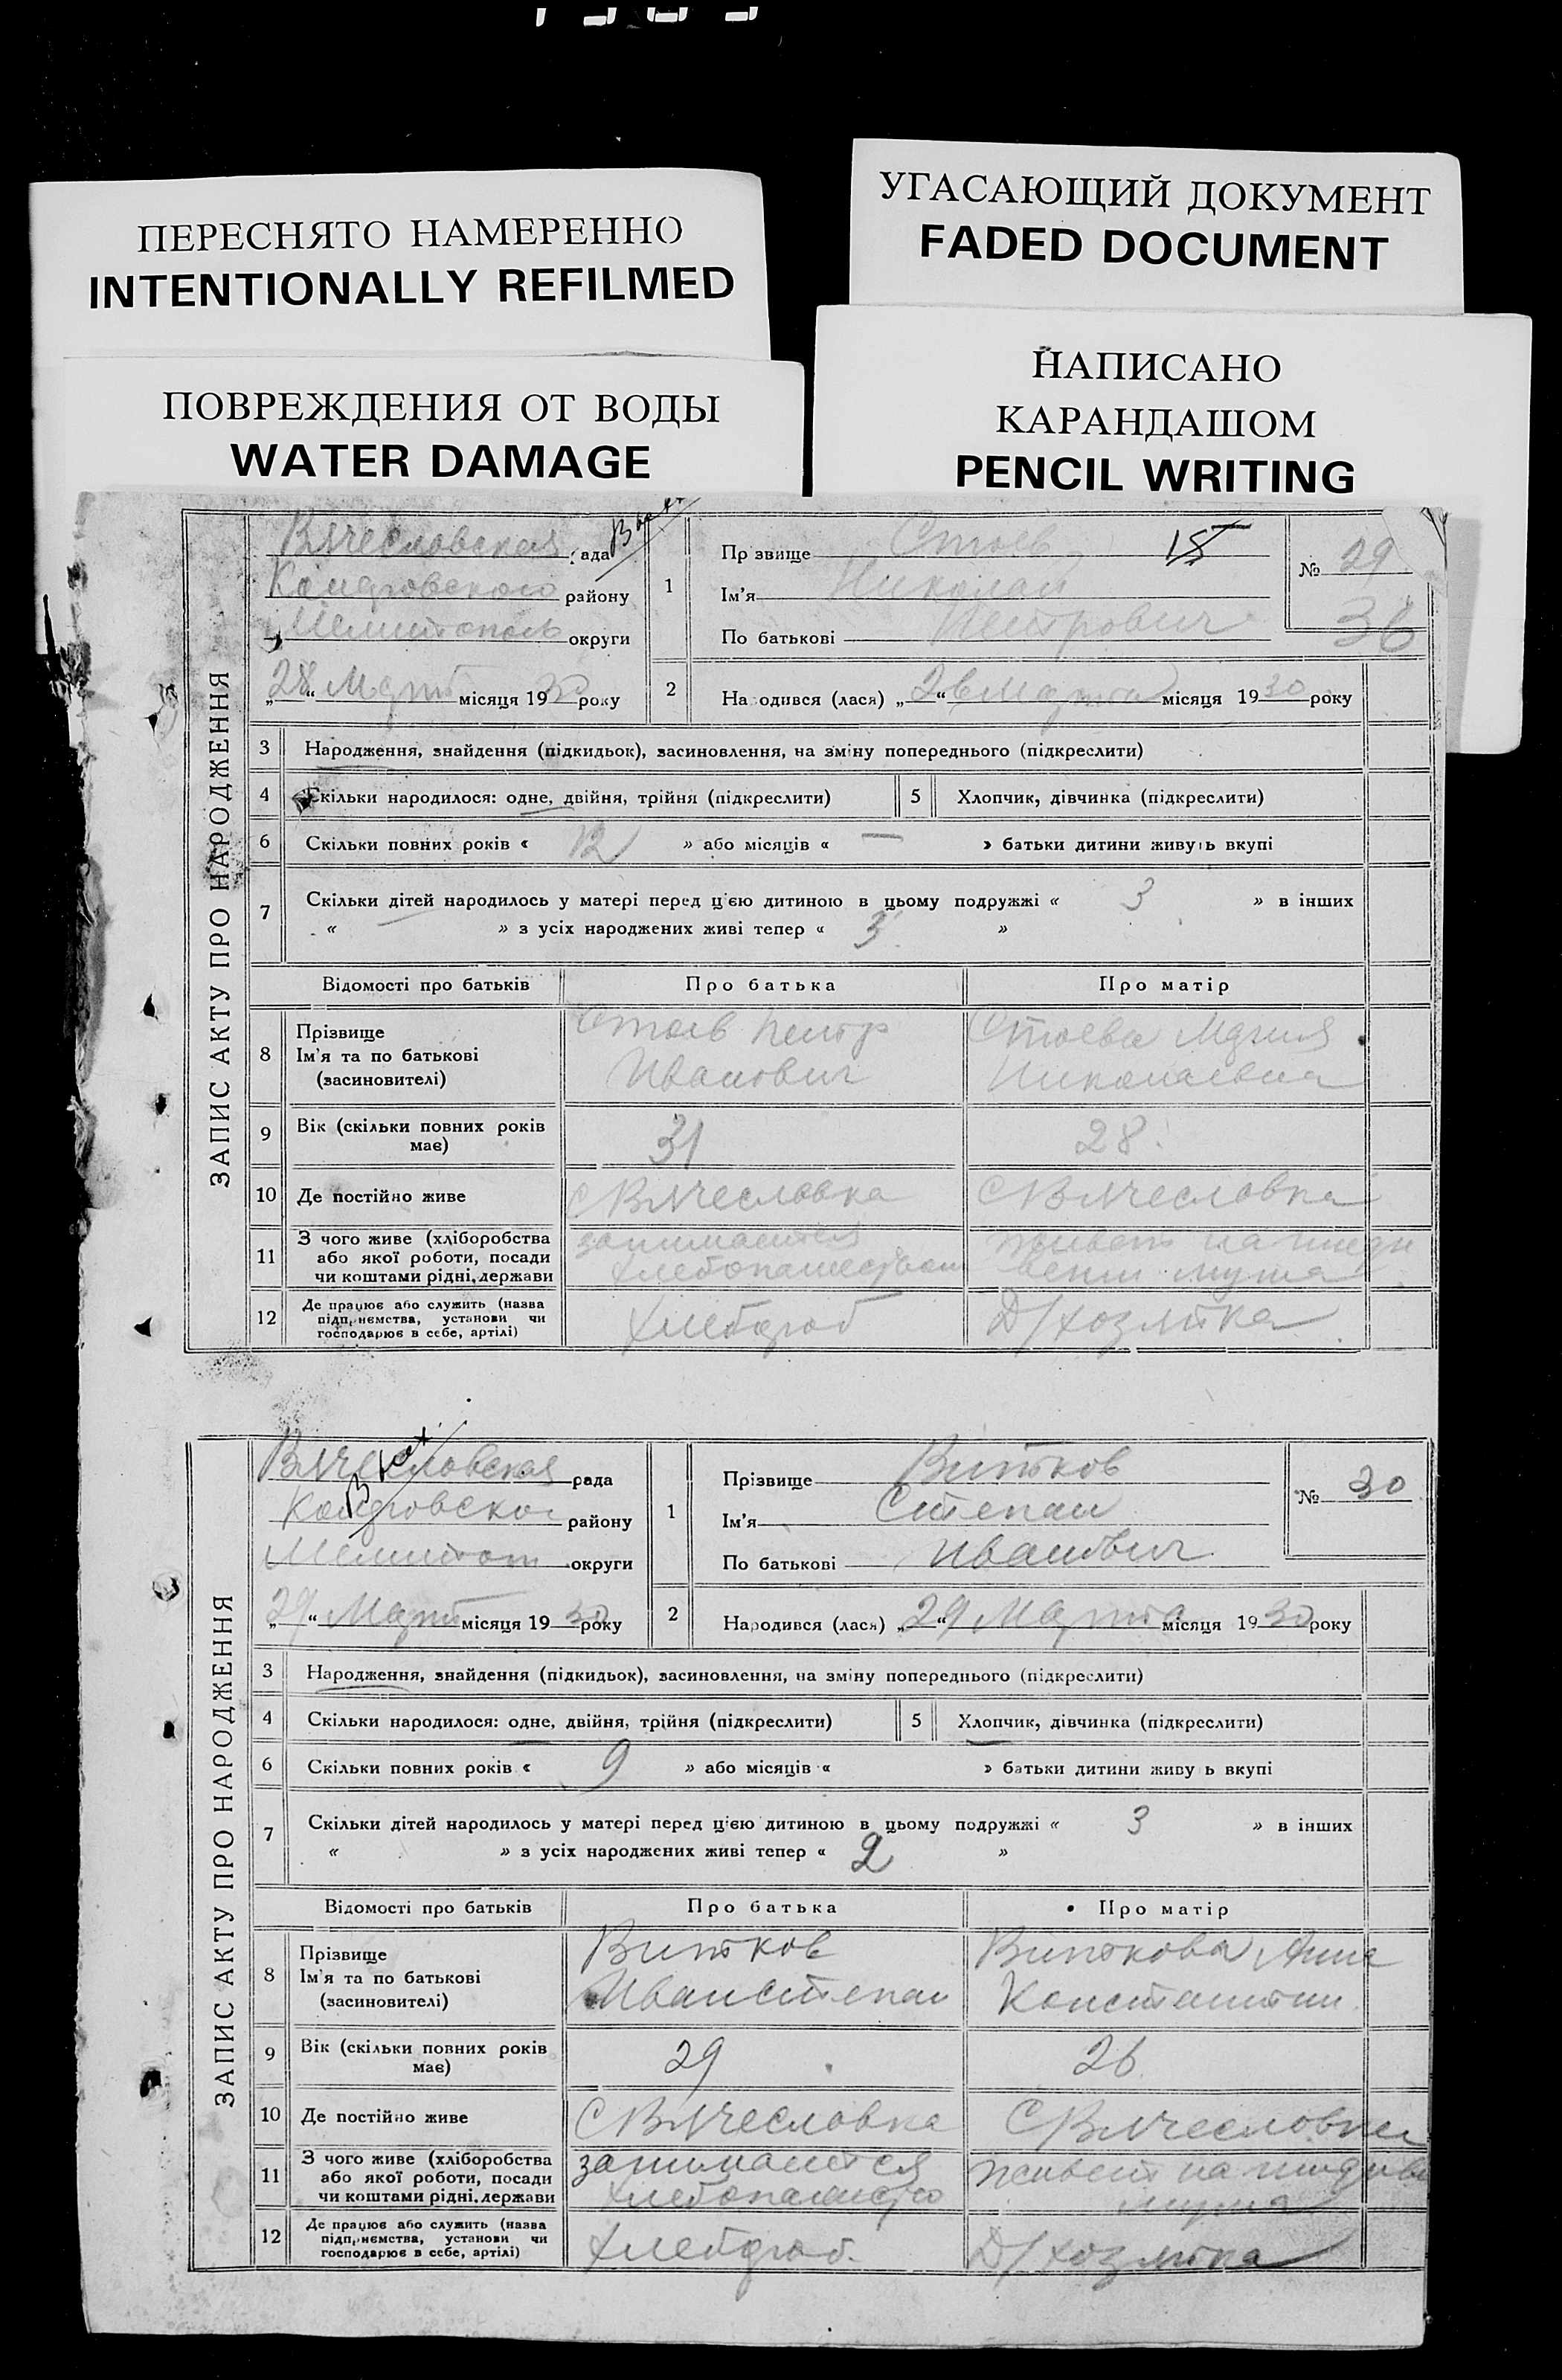 ПЕРЕСНЯТО НАМЕРЕННО
INTENTIONALLY REFILMED
УГАСАЮЩИЙ ДОКУМЕНТ
FADED DOCUMENT
ПОВРЕЖДЕНИЯ ОТ ВОДЫ
WATER DAMAGE
НАПИСАНО
КАРАНДАШОМ
PENCIL WRITING
ЗАПИС АКТУ ПРО НАРОДЖЕННЯ
Вячесловская рада
району
Мелитополь округи
„28“ Март місяця 1930 року
1
Прізвище Стоев 15
Ім'я Николай
По батькові Петрович
№ 29
36
2 Народився (лася) „26“ Марта місяця 1930 року
3 Народження, знайдення (підкидьок), засиновлення, на зміну попереднього (підкреслити)
4 Скільки народилося: одне, двійня, трійня (підкреслити) 5 Хлопчик, дівчинка (підкреслити)
6 Скільки повних років « 12 » або місяців « — » батьки дитини живуть вкупі
7 Скільки дітей народилось у матері перед цією дитиною в цьому подружжі « 3 » в інших
« — » з усіх народжених живі тепер « 3 »
Відомості про батьків Про батька Про матір
8 Прізвище Ім'я та по батькові (засиновителі)
Стоев Петр Иванович
Стоева Мария Николаевна
9 Вік (скільки повних років має) 31 28
10 Де постійно живе С Вячесловка С Вячесловка
11 З чого живе (хліборобства або якої роботи, посади чи коштами рідні, держави
занимается
живет на
мужа
12 Де працює або служить (назва підприємства, установи чи господарює в себе, артілі)
Хлебороб Д/хозяйка
ЗАПИС АКТУ ПРО НАРОДЖЕННЯ
Вячесловская рада
району
Мелитоп округи
„29“ Март місяця 1930 року
1
Прізвище Витков
Ім'я Степан
По батькові Иванович
№ 30
2 Народився (лася) „29“ Марта місяця 1930 року
3 Народження, знайдення (підкидьок), засиновлення, на зміну попереднього (підкреслити)
4 Скільки народилося: одне, двійня, трійня (підкреслити) 5 Хлопчик, дівчинка (підкреслити)
6 Скільки повних років « 9 » або місяців « » батьки дитини живу ь вкупі
7 Скільки дітей народилось у матері перед цією дитиною в цьому подружжі « 3 » в інших
« » з усіх народжених живі тепер « 2 »
Відомості про батьків Про батька Про матір
8 Прізвище Ім'я та по батькові (засиновителі)
Витков Иван Степан
Виткова Анна Константин
9 Вік (скільки повних років має) 29 26
10 Де постійно живе С Вячесловка С Вячесловка
11 З чого живе (хліборобства або якої роботи, посади чи коштами рідні, держави
занимается
живет на
мужа
12 Де працює або служить (назва підприємства, установи чи господарює в себе, артілі)
Хлебороб. Д/хозяйка